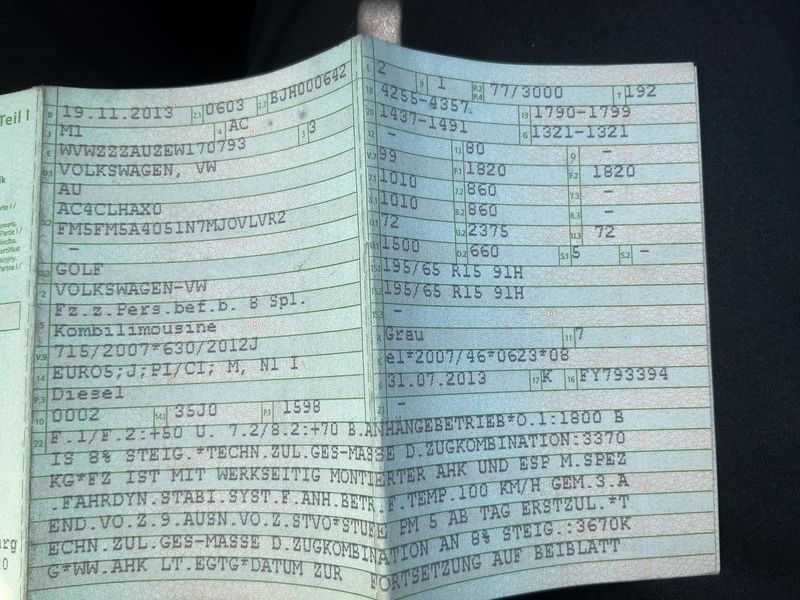 Teil I
B 19.11.2013 2.1 0603 2.2 BJH000642
J M1 4 AC 3 3
E WVWZZZAUZEW170793
D.1 VOLKSWAGEN, VW
AU
AC4CLHAX0
D.2 FM5FM5A4051N7MJOVLVR2
-
D.3 GOLF
2 VOLKSWAGEN-VW
Fz.z.Pers.bef.b. 8 Spl.
5 Kombilimousine
V.9 715/2007*630/2012J
14 EURO5;J;PI/CI; M, N1 I
P.3 Diesel
10 0002 14.1 35J0 P.1 1598
L 2 9 1 P.2 P.4 77/3000 T 192
18 4255-4357 19 1790-1799
20 1437-1491 G 1321-1321
12 - 13 80 Q -
V.7 99 F.1 1820 F.2 1820
7.1 1010 7.2 860 7.3 -
8.1 1010 8.2 860 8.3 -
U.1 72 U.2 2375 U.3 72
O.1 1500 O.2 660 S.1 5 S.2 -
15.1 195/65 R15 91H
15.2 195/65 R15 91H
15.3 -
R Grau 11 7
K e1*2007/46*0623*08
6 31.07.2013 17 K 16 FY793394
21 -
22 F.1/F.2:+50 U. 7.2/8.2:+70 B.ANHÄNGEBETRIEB*O.1:1800 B
IS 8% STEIG.*TECHN.ZUL.GES-MASSE D.ZUGKOMBINATION:3370
KG*FZ IST MIT WERKSEITIG MONTIERTER AHK UND ESP M.SPEZ
.FAHRDYN.STABI.SYST.F.ANH.BETR.F.TEMP.100 KM/H GEM.3.A
END.VO.Z.9.AUSN.VO.Z.STVO*STUFE PM 5 AB TAG ERSTZUL.*T
ECHN.ZUL.GES-MASSE D.ZUGKOMBINATION AN 8% STEIG.:3670K
G*WW.AHK LT.EGTG*DATUM ZUR FORTSETZUNG AUF BEIBLATT